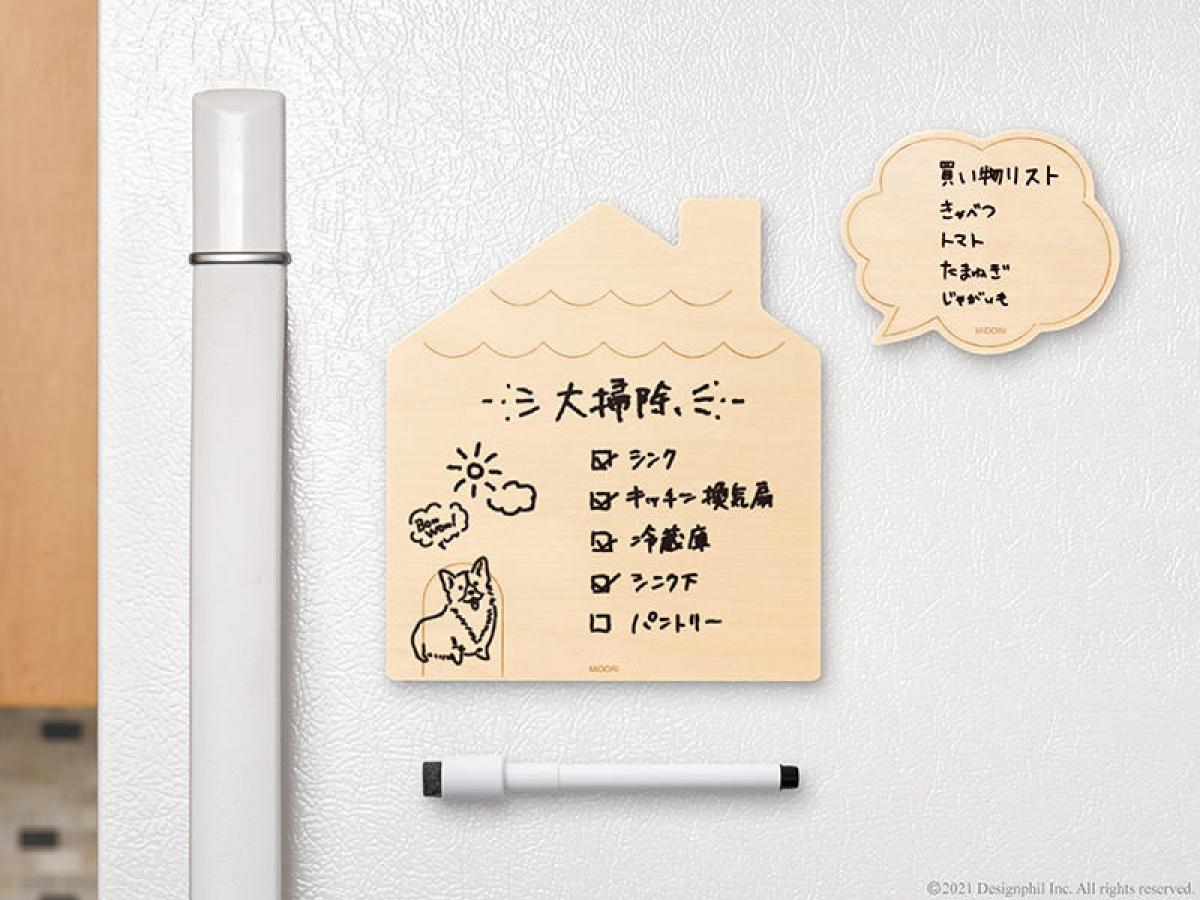 買い物リスト
きゃべつ
トマト
たまねぎ
じゃがいも
MIDORI
大掃除
☑ シンク
☑ キッチン換気扇
☑ 冷蔵庫
☑ シンク下
☐ パントリー
Bow
Wow!
MIDORI
©2021 Designphil Inc. All rights reserved.